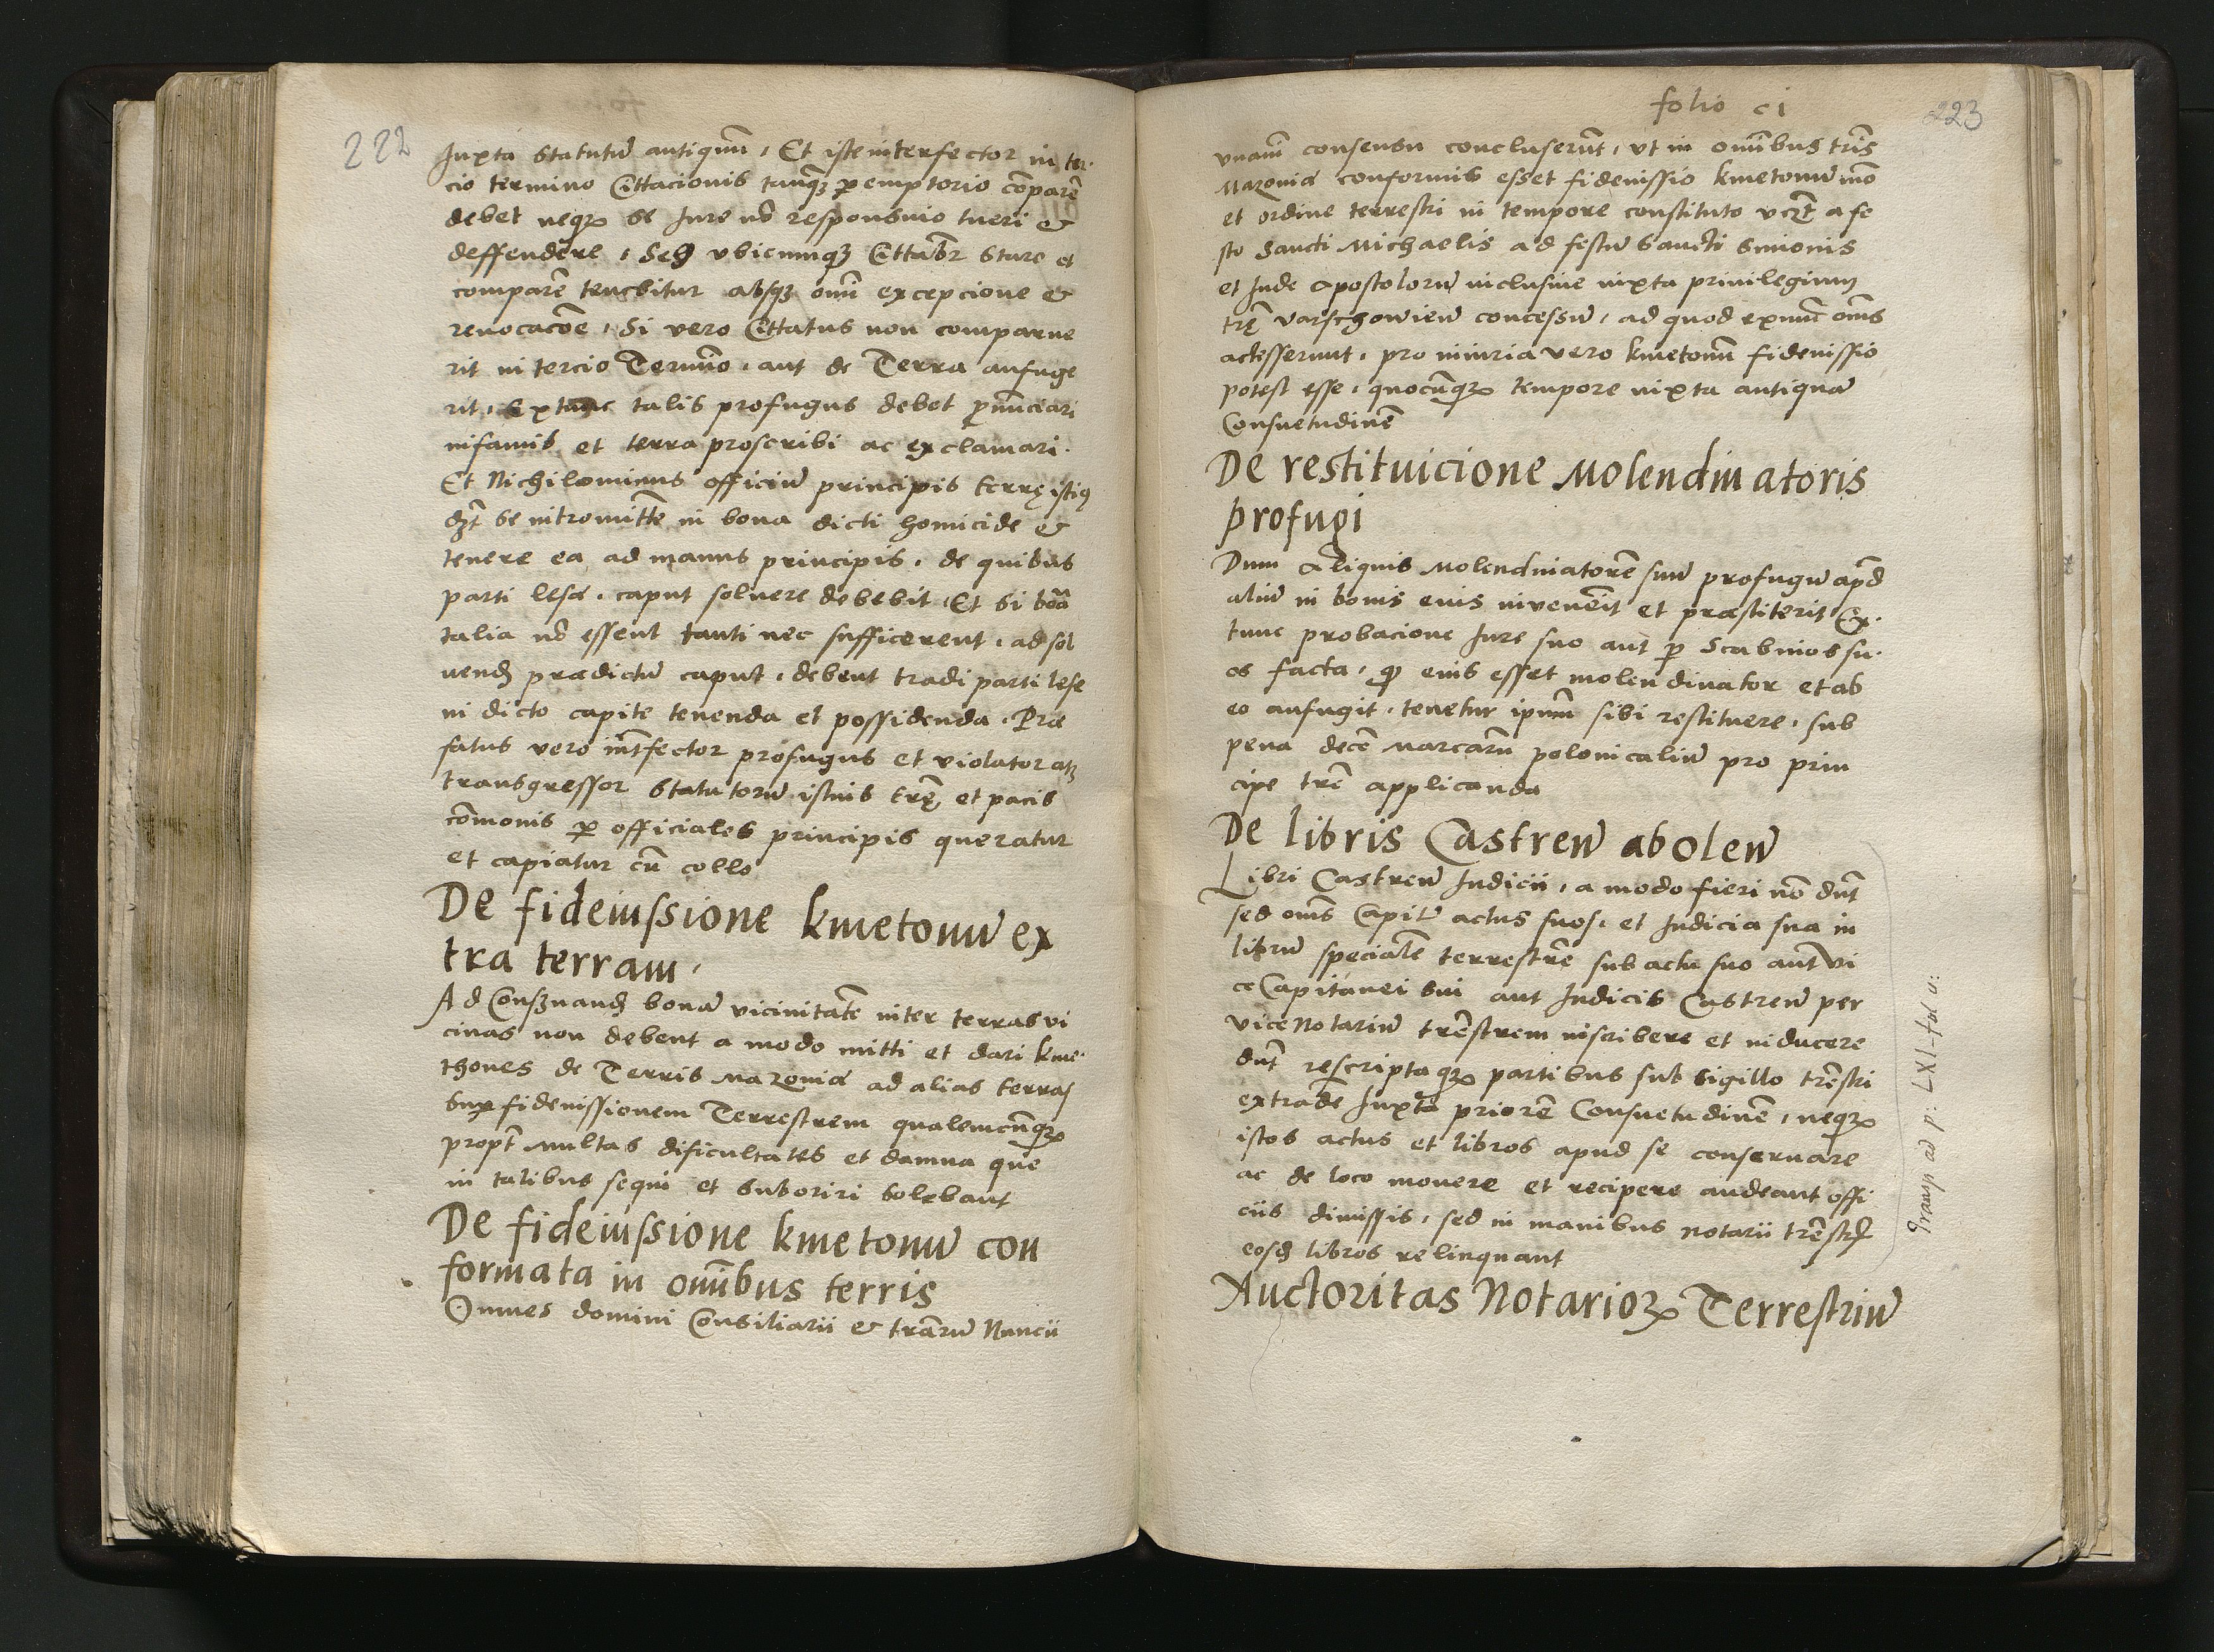 222
Juxta Statutũ antiquũ, Et iste interfector in ter-
cio termino Cittacionis tanq̃ꝫ ꝑemptorio cõparẽ
debet neqꝫ se Jure nõ responsuio tueri &
deffendere, Sed vbicumqꝫ Cittabr̃ Stare et
comparẽ tenebitur absqꝫ om̃i excepcione &
reuocacõe, Si vero Cittatus non comparue
rit in tercio Termĩo, aut de Terra aufuge
rit, Extunc talis profugus debet ꝓnũciari
infamis et terra proscribi ac exclamari.
Et Nichilominus officiũ principis terrę istiꝰ
dꝫt se intromitt̃e in bona dicti homicide &
tenere ea ad manus principis, de quibus
parti lesæ, caput soluere debebit, Et si bõa
talia nõ essent tanti nec sufficerent, ad sol
uend̃ prædictũ caput, debent tradi parti lese
in dicto capite tenenda et possidenda. Præ
fatus vero int̃fector profugus et violator atqꝫ
transgressor Statutorũ istius tr̃ę, et pacis
cõmonis ꝑ officiales principis queratur
et capiatur cũ collo
De fideiussione kmetonũ ex
tra terram,
Ad Conseruand̃ bonã vicinitatẽ inter terras vi
cinas non debent a modo mitti et dari kme-
thones de Terris Mazouiæ ad alias terras
super fideiussionem Terrestrem qualemcũqꝫ
propt̃ multas dificultates et damna que
in talibus sequi et suboriri solebant
De fideiussione kmetonũ con
formata in om̃ibus terris
Omnes domini Consiliarii & tr̃arũ Nuncii
folio ci
223
vnãm consensu concluserũt, vt in om̃ibus tr̃is
Mazouiæ conformis esset fideiussio kmetonũ mõ
et ordine terrestri in tempore constituto vcꝫt a fe
sto Sancti Michaelis ad festũ Sancti Simonis
et Jude Apostolorũ inclusiue iuxta priuilegium
tr̃ę Varschowieñ concessũ, ad quod exnũc om̃s
actesserunt, pro iniuria vero kmetonũ fideiussio
potest esse, quocũqꝫ tempore iuxta antiquã
Consuetudinẽ
De restituicione Molendinatoris
profugi
Dum Aliquis Molendinatorẽ suũ profugũ apd̃
aliũ in bonis eius inveñit et præstiterit Ex-
tunc probacione Jure suo aut ꝑ Scabinos su-
os facta, ꝙ eius esset molendinator et ab
eo aufugit, tenetur ipm̃ sibi restituere, sub
pena decẽ Marcarũ polonicaliũ pro prin
cipe tr̃e applicanda
De libris Castreñ aboleñ
Libri Castreñ Judicii, a modo fieri nõ dñt
sed om̃s Capit̃ actus suos, et Judicia sua in
librũ specialẽ terrestrẽ sub actu suo aut vi
ce Capitanei sui aut Judicis Castreñ per
vice Notariũ tr̃estrem inscribere et inducere
dñt rescriptaqꝫ partibus sub sigillo tr̃estri
extradẽ Juxta priorẽ Consuetudinẽ, neqꝫ
istos actus et libros apud se conseruare
ac de loco mouere et recipere audeant offi
ciis dimissis, sed in manibus Notarii tr̃estr̃
eosd̃ libros relinquant
Auctoritas Notarioꝝ Terrestriũ
Transp ad p: LXI